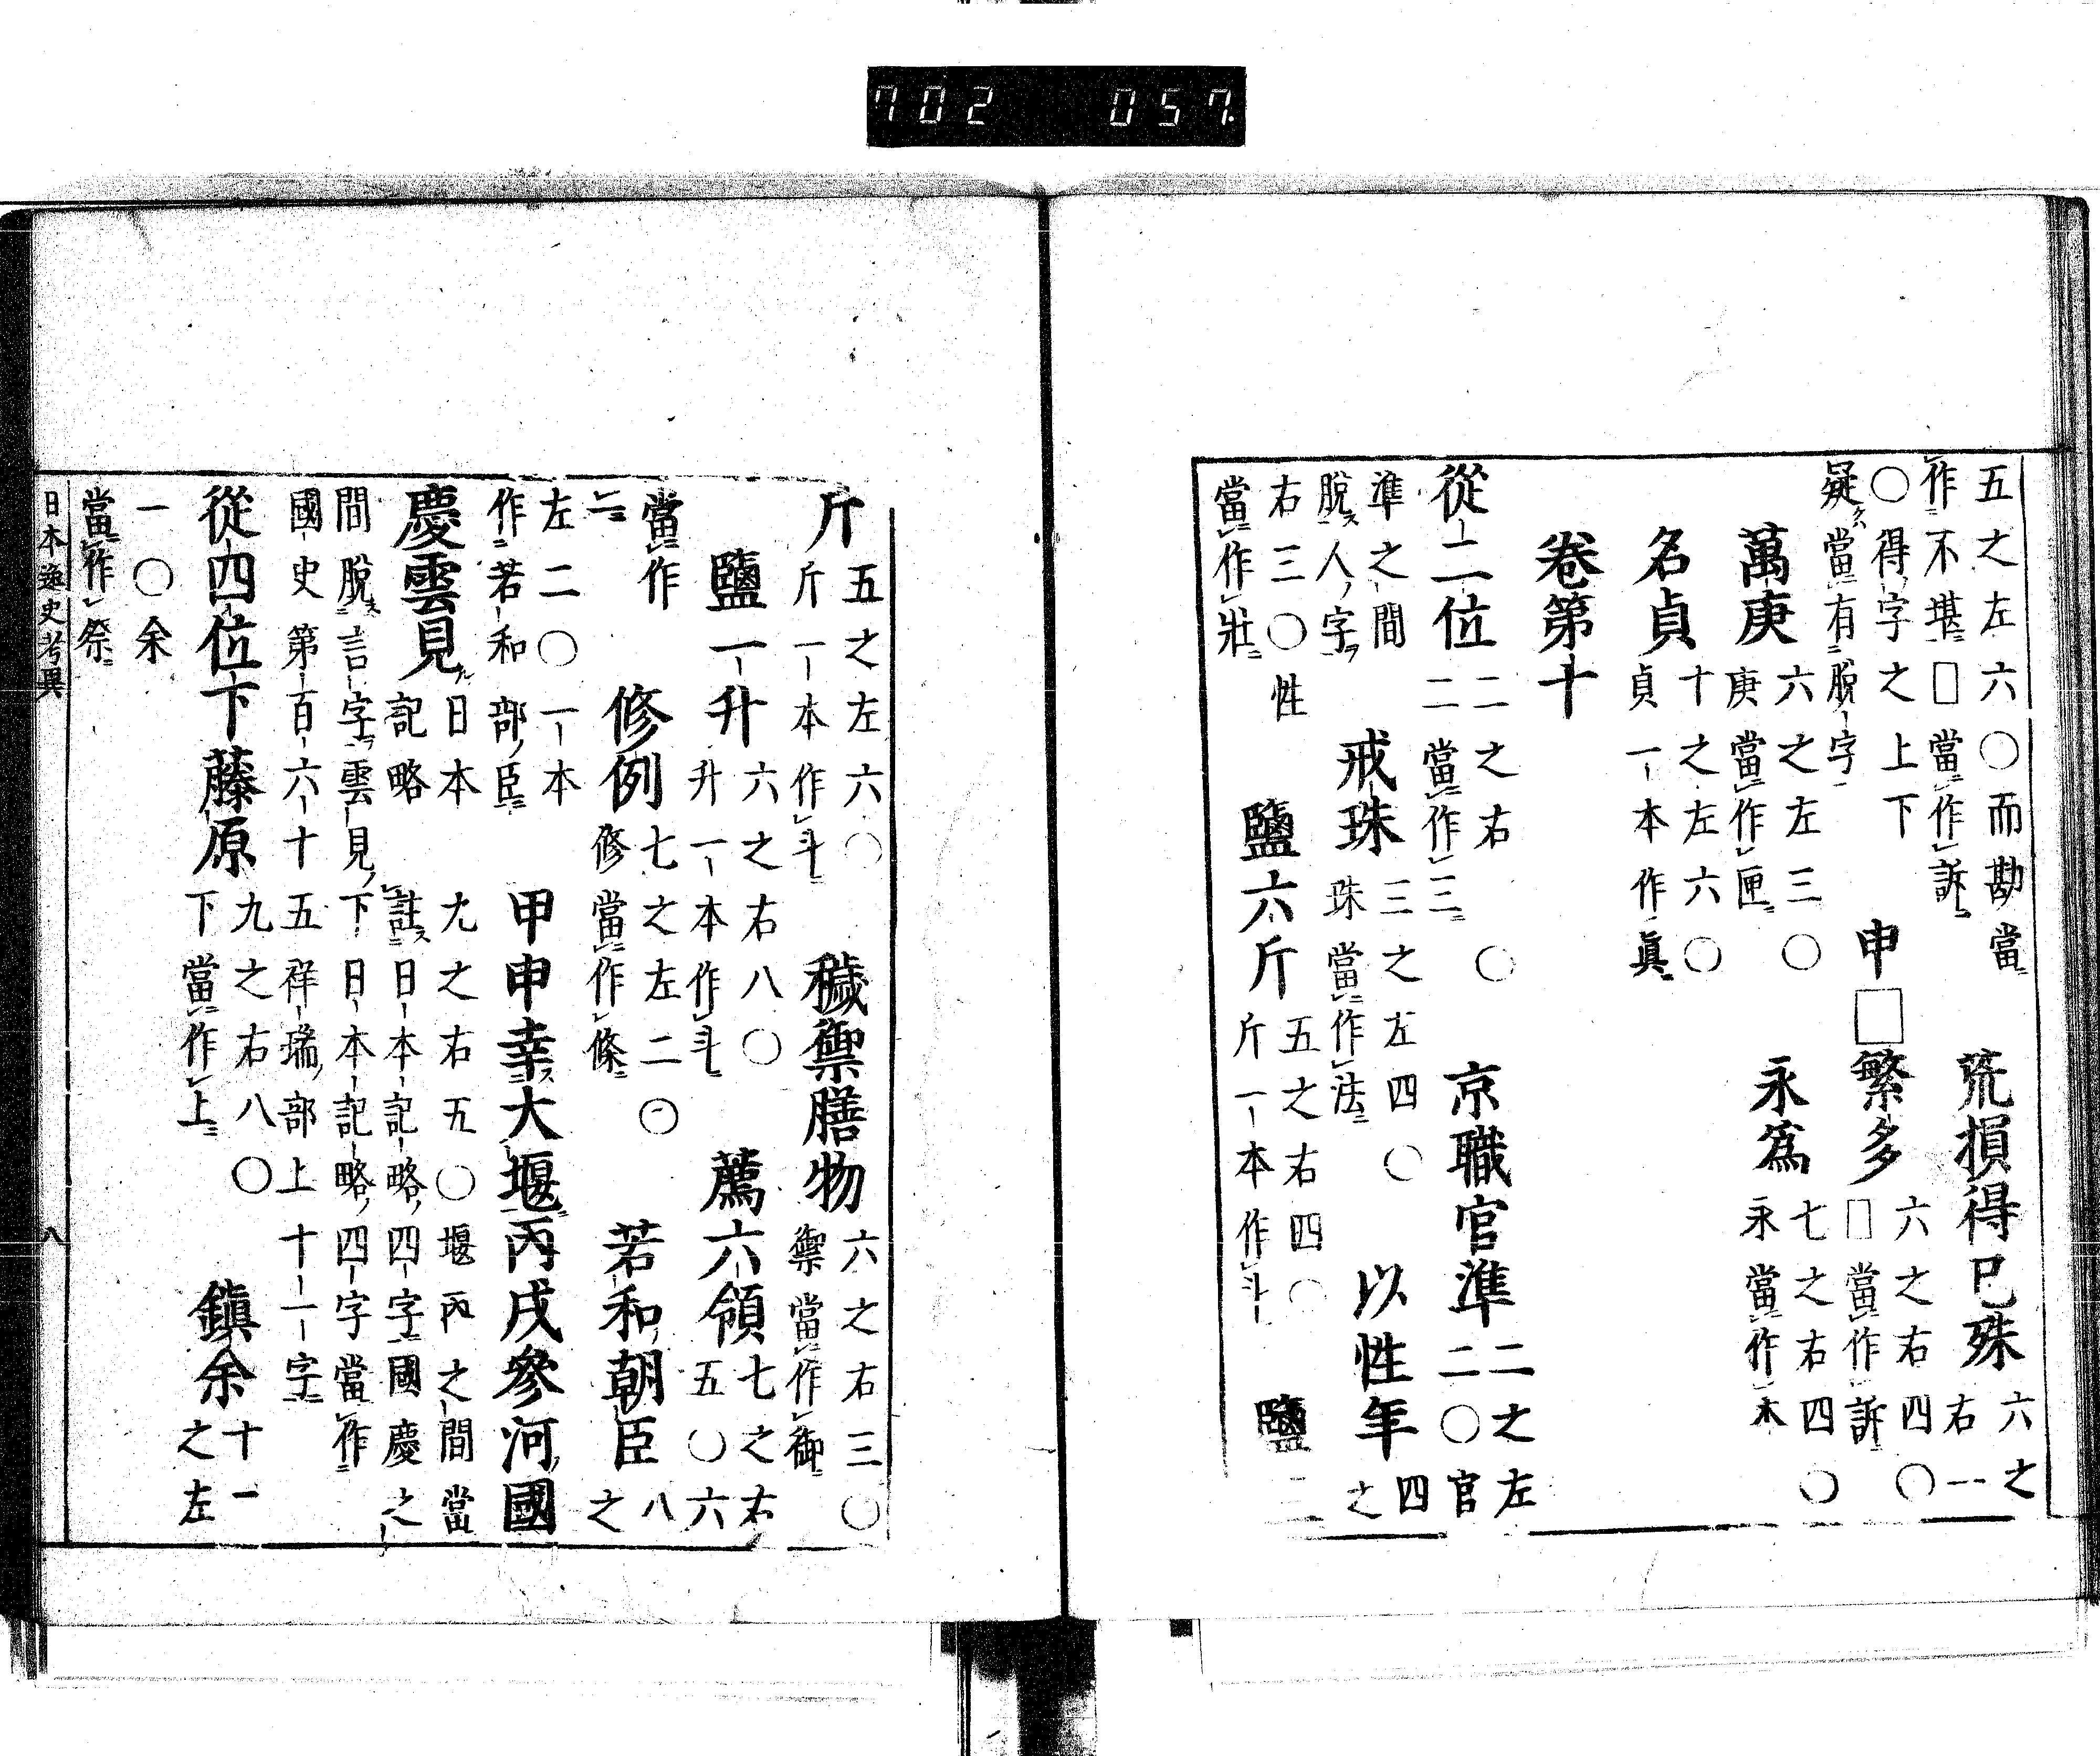 702 057.
五之左六〇而勘當
作不堪□當作訴
荒損得已殊六之右一
〇得字之上下
疑當有脫字
申□繁多六之右四〇□當作訴
萬庚六之左三〇庚當作匣
永為七之右四〇永當作木
名貞十之左六〇貞一本作眞
卷第十
從二位二之右〇二當作三
京職官準二之左二〇官
準之間脫人字
戒珠三之左四〇珠當作法
以性年四之
右三〇性當作壯
鹽六斤五之右四〇斤一本作斗
鹽二
斤五之左六〇斤一本作斗
穢禦膳物六之右三〇禦當作御
鹽一升六之右八〇升一本作斗
薦六領七之右五〇六
當作二
修例七之左二〇修當作條
若和朝臣八之
左二〇一本作若和部臣
甲申幸大堰丙戌參河國
慶雲見日本記略
九之右五〇堰丙之間當註日本記略四字國慶之
間脫言字雲見下日本記略四字當作
國史第百六十五祥瑞部上十一字
從四位下藤原九之右八〇下當作上
鎭余十一之左
一〇余當作祭
日本逸史考異
八